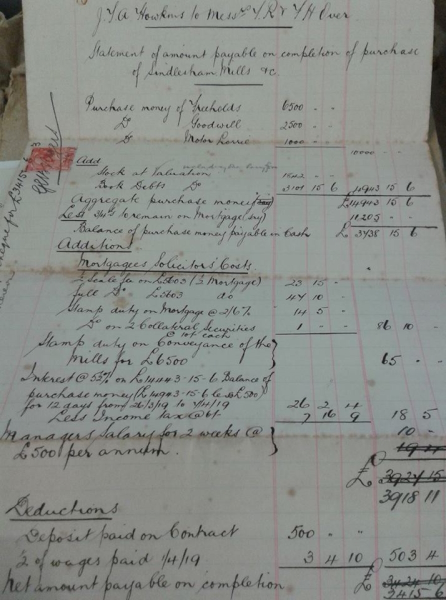 J. T. A Howkins to Messrs T R & T H Over
Statement of amount payable on completion of purchase
of Sindlesham Mills &c.
Purchase money of Freeholds 6500 - -
Do Goodwill 2500 - -
Do Motor Lorrie 1000 - -
10000 - -
Add
Stock at Valuation
Book Debts Do 3101 15 6 4943 15 6
Aggregate purchase money £14943 15 6
Less to remain on Mortgage 11205 - -
Balance of purchase money payable in Cash £ 3738 15 6
Additions
Mortgagees Solicitors Costs.
½ Scale fee on £5603 (½ Mortgage) 23 15 -
full Do £5603 do 47 10 -
Stamp duty on Mortgage @ 2/6% 14 5 -
Do on 2 Collateral Securities 1 - - 86 10 -
10/- each
Stamp duty on Conveyance of the
Mills for £6500 65 - -
Interest @ on £14443-15-6 Balance of
purchase money (£14943-15-6 less £500)
for 12 days from 26/3/19 to 7/4/19 26 2 4
Less Income tax @ 6/- 7 16 9 18 5
Managers Salary for 2 weeks @
£500 per annum. 19
£ 3927 15
3918 11
Deductions
Deposit paid on Contract 500 - -
½ of wages paid 1/4/19 3 4 10 503 4
Net amount payable on completion £ 3424 10
3415 6